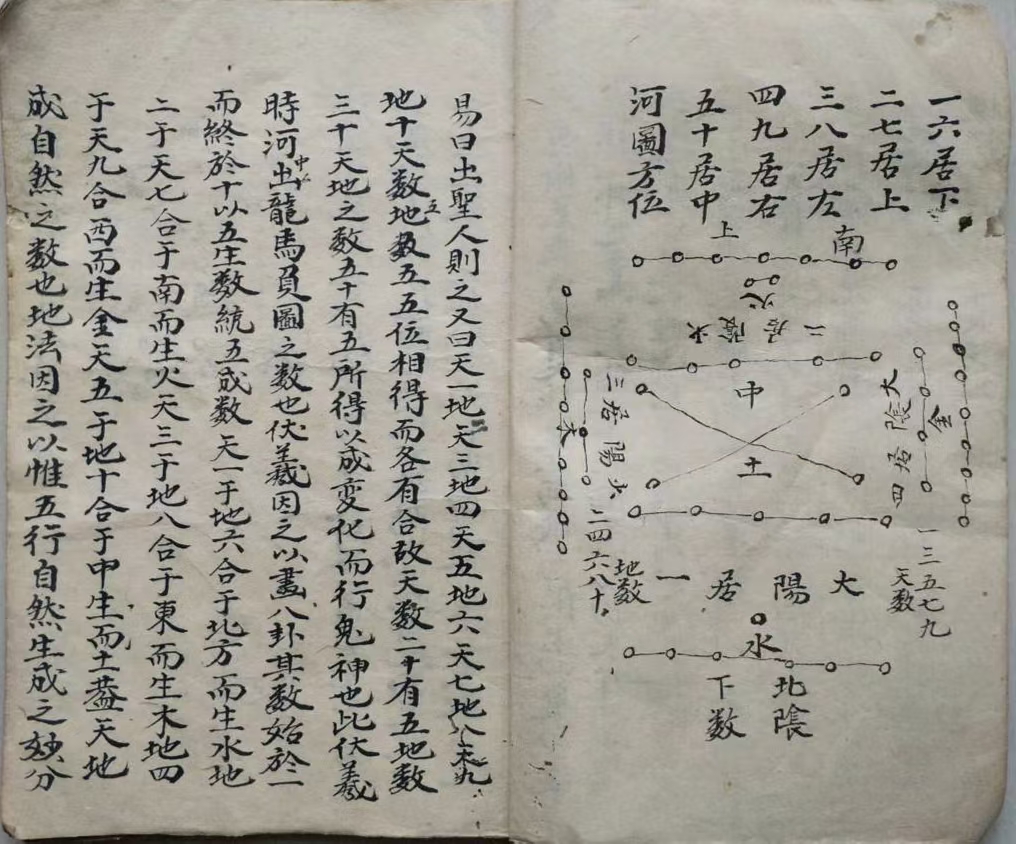 一六居下
二七居上
三八居左
四九居右
五十居中
河圖方位
南
上
火
二居陰火
中
土
三居陽火
木
大陰居四
金
一三五七九
天数
二四六八十
地数
大陽居一
水
北陰
下数
易曰出聖人則之又曰天一地天三地四天五地六天七地八天九
地十天数地数五五位相得而各有合故天数二十有五地数
三十天地之数五十有五所得以成变化而行鬼神也此伏羲
時河中出龍馬負圖之数也伏羲因之以畫八卦其数始於一
而終於十以五生数統五成数天一于地六合于北方而生水地
二于天七合于南而生火天三于地八合于東而生木地四
于天九合西而生金天五于地十合于中生而土蓋天地
成自然之数也地法因之以惟五行自然生成之妙分